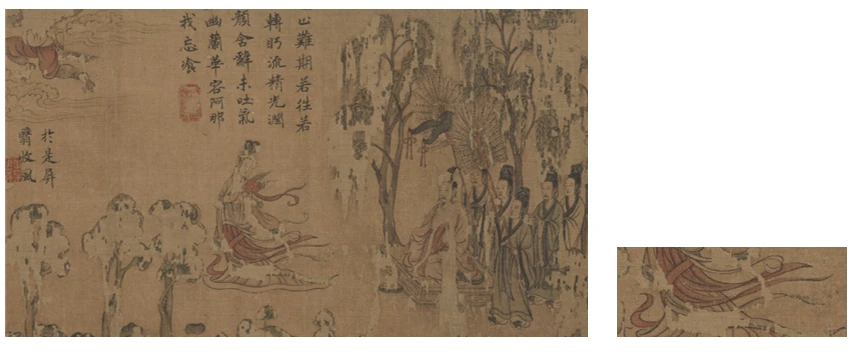 止難期若徃若
轉眄流精光潤
顏含辭未吐氣
幽蘭華容阿那
我忘飡
於是屏
翳收風